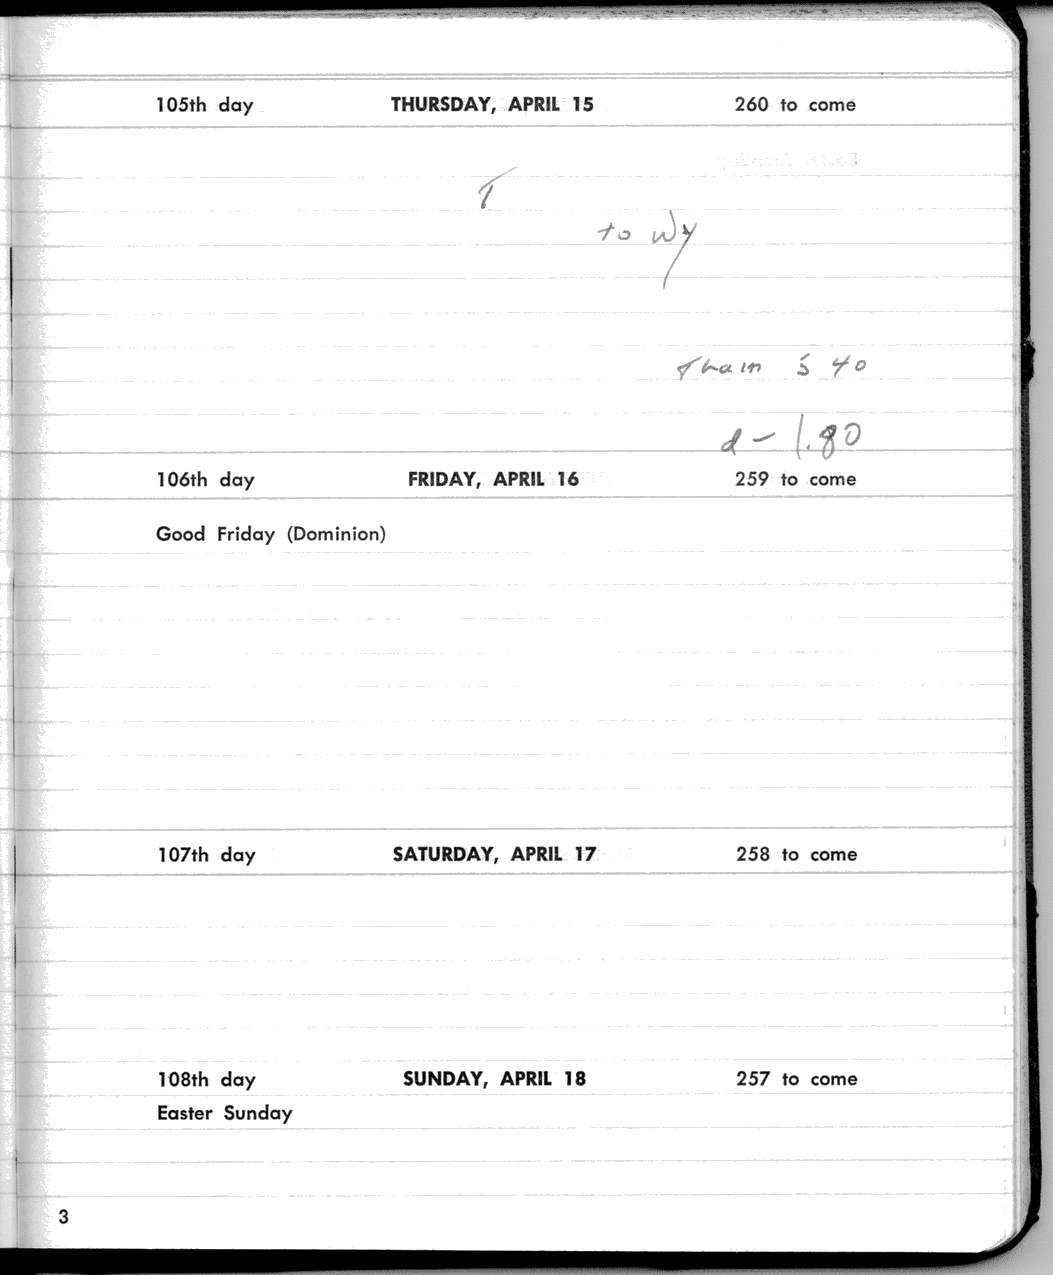 105th day THURSDAY, APRIL 15 260 to come
T
to Wy
Tham 5 40
d - 1.80
106th day FRIDAY, APRIL 16 259 to come
Good Friday (Dominion)
107th day SATURDAY, APRIL 17 258 to come
108th day SUNDAY, APRIL 18 257 to come
Easter Sunday
3